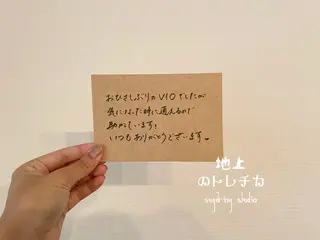 おひさしぶりのVIOでしたが
気になった時に通えるので
助かっています!
いつもありがとうございます
地上
のトレチカ
sugd by studio